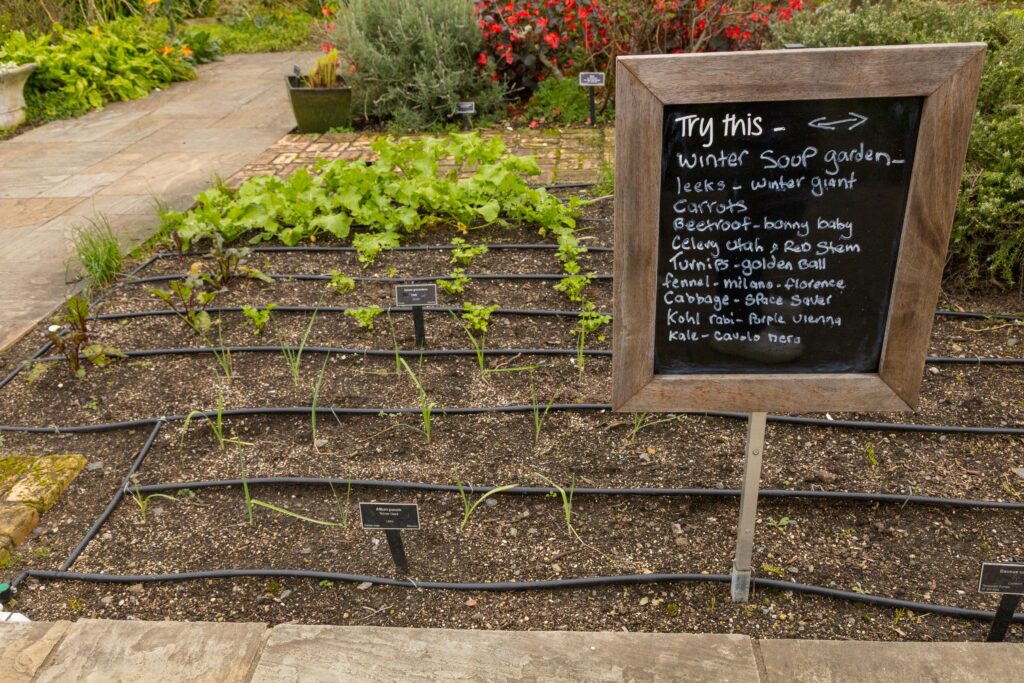 Try this -
winter Soup garden -
leeks - winter giant
Carrots
Beetroot - bonny baby
Celery Utah & Red Stem
Turnips - golden Ball
fennel - milano - florence
Cabbage - Space Saver
Kohl rabi - Purple vienna
Kale - Cavolo nero
Allium porrum